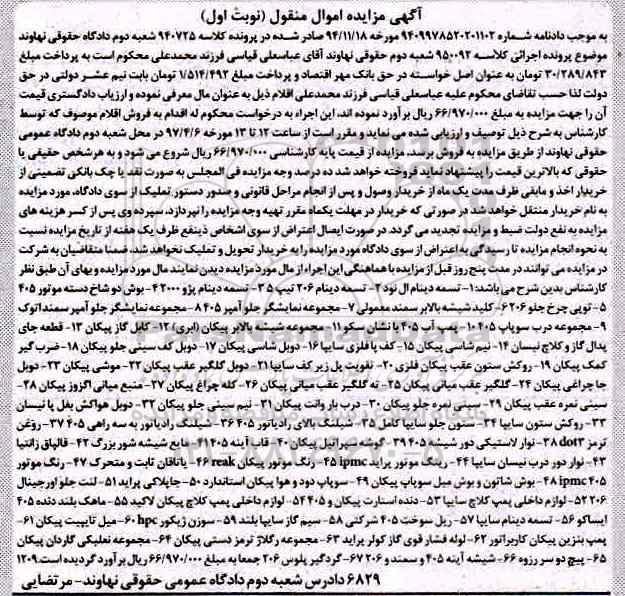 آگهی مزایده اموال منقول (نوبت اول)
به موجب دادنامه شماره ۹۴۰۹۹۷۸۵۲۰۲۰۱۱۰۲ مورخه ۹۴/۱۱/۱۸ صادر شده در پرونده کلاسه ۹۴۰۷۲۵ شعبه دوم دادگاه حقوقی نهاوند
موضوع پرونده اجرائی کلاسه ۹۵۰۰۹۲ شعبه دوم حقوقی نهاوند آقای عباسعلی قیاسی فرزند محمدعلی محکوم است به پرداخت مبلغ
۳۰/۲۸۹/۸۴۳ تومان به عنوان اصل خواسته در حق بانک مهر اقتصاد و پرداخت مبلغ ۱/۵۱۴/۴۹۲ تومان بابت نیم عشر دولتی در حق
دولت لذا حسب تقاضای محکوم علیه عباسعلی قیاسی فرزند محمدعلی اقلام ذیل به عنوان مال معرفی نموده و ارزیاب دادگستری قیمت
آن را جهت مزایده به مبلغ ۶۶/۹۷۰/۰۰۰ ریال برآورد نموده اند، این اجراء به درخواست محکوم له اقدام به فروش اقلام موصوف که توسط
کارشناس به شرح ذیل توصیف و ارزیابی شده می نماید و مقرر است از ساعت ۱۲ تا ۱۳ مورخه ۹۷/۴/۶ در محل شعبه دوم دادگاه عمومی
حقوقی نهاوند از طریق مزایده به فروش برسد، مزایده از قیمت پایه کارشناسی ۶۶/۹۷۰/۰۰۰ ریال شروع می شود و به هرشخص حقیقی یا
حقوقی که بالاترین قیمت را پیشنهاد نماید فروخته خواهد شد ده درصد وجه مزایده فی المجلس به صورت نقد یا چک بانکی تضمینی از
خریدار اخذ و مابقی ظرف مدت یک ماه از خریدار وصول و پس از انجام مراحل قانونی و صدور دستور تملیک از سوی دادگاه، مورد مزایده
به نام خریدار منتقل خواهد شد در صورتی که خریدار در مهلت یکماه مقرر تهیه وجه مزایده را نپردازد، سپرده وی پس از کسر هزینه های
مزایده به نفع دولت ضبط و مزایده تجدید می گردد. در صورت ایصال اعتراض از سوی اشخاص ذینفع ظرف یک هفته از تاریخ مزایده نسبت
به نحوه انجام مزایده تا رسیدگی به اعتراض از سوی دادگاه مورد مزایده را به خریدار تحویل و تملیک نخواهد شد، ضمنا متقاضیان به شرکت
در مزایده می توانند در مدت پنج روز قبل از مزایده با هماهنگی این اجراء از مال مورد مزایده دیدن نمایند مال مورد مزایده و بهای آن طبق نظر
کارشناس بدین شرح می باشد: ۱- تسمه دینام ال نود ۲- تسمه دینام ۲۰۶ تیپ ۵ ۳- تسمه دینام پژو ۲۰۰۰ ۴- بوش دو شاخ دسته موتور ۴۰۵
۵- توپی چرخ جلو ۲۰۶ ۶- کلید شیشه بالابر سمند معمولی ۷- مجموعه نمایشگر جلو آمپر ۴۰۵ ۸- مجموعه نمایشگر جلو آمپر سمند اتوک
۹- مجموعه درب سوپاپ ۴۰۵ ۱۰- پمپ آب ۴۰۵ با نشان سکو ۱۱- مجموعه شیشه بالابر پیکان (ابری) ۱۲- کابل گاز پیکان ۱۳- قطعه جای
پدال گاز و کلاچ نیسان ۱۴- نیم شاسی پیکان ۱۵- کف پا فلزی سایپا ۱۶- دوبل شاسی پیکان ۱۷- دوبل کف سینی جلو پیکان ۱۸- ضرب گیر
کمک پیکان ۱۹- روکش ستون عقب پیکان فلزی ۲۰- تقویت پل زیر کف سایپا ۲۱- دوبل گلگیر عقب پیکان ۲۲- موشی پیکان ۲۳- دوبل
جا چراغی پیکان ۲۴- گلگیر عقب میانی پیکان ۲۵- ته گلگیر عقب میانی پیکان ۲۶- کله چراغ پیکان ۲۷- منبع میانی اگزوز پیکان ۲۸-
سینی نمره عقب پیکان ۲۹- سینی نمره جلو پیکان ۳۰- درب بار وانت پیکان ۳۱- نیم سینی جلو پیکان ۳۲- دوبل هواکش بغل پا نیسان
۳۳- روکش ستون سایپا ۳۴- ستون جلو سایپا کامل ۳۵- شیلنگ بالای رادیاتور ۴۰۵ ۳۶- شیلنگ رادیاتور به سه راهی ۴۰۵ ۳۷- روغن
ترمز dot3 ۳۸- نوار لاستیکی دور شیشه ۴۰۵ ۳۹- گوشه سپر اتیل پیکان ۴۰- قاب آینه ۴۰۵ ۴۱- مایع شیشه شور بزرگ ۴۲- قالپاق زانتیا
۴۳- نوار دور درب نیسان سایپا ۴۴- رینگ موتور پراید ipmc ۴۵- رنگ موتور پیکان reak ۴۶- یاتاقان ثابت و متحرک ۴۷- رنگ موتور
۴۰۵ ipmc ۴۸- بوش شاتون و بوش میل سوپاپ پیکان ۴۹- سوپاپ دود و هوا پیکان استاندارد ۵۰- جاپلاکی پراید ۵۱- لنت جلو اورجینال
۲۰۶ ۵۲- لوازم داخلی پمپ کلاچ سایپا ۵۳- دنده استارت پیکان و ۴۰۵ ۵۴- لوازم داخلی پمپ کلاچ پیکان لاکید ۵۵- ماهک بلند دنده ۴۰۵
ایساکو ۵۶- تسمه دینام سایپا ۵۷- ریل سوخت ۴۰۵ شرکتی ۵۸- سیم گاز سایپا بلند ۵۹- سوزن ژیکور hpc ۶۰- میل تایپیت پیکان ۶۱-
پمپ بنزین پیکان کاربراتور ۶۲- لوله فشار قوی گاز کولر پراید ۶۳- مجموعه رگلاژ ترمز دستی پیکان ۶۴- مجموعه نعلبکی گاردان پیکان
۶۵- پیچ دو سر رزوه ۶۶- شیشه آینه ۴۰۵ و سمند و ۲۰۶ ۶۷- گردگیر پلوس ۲۰۶ جمعا به مبلغ ۶۶/۹۷۰/۰۰۰ ریال برآورد گردیده است. ۱۲۰۹
۶۸۲۹ دادرس شعبه دوم دادگاه عمومی حقوقی نهاوند- مرتضایی